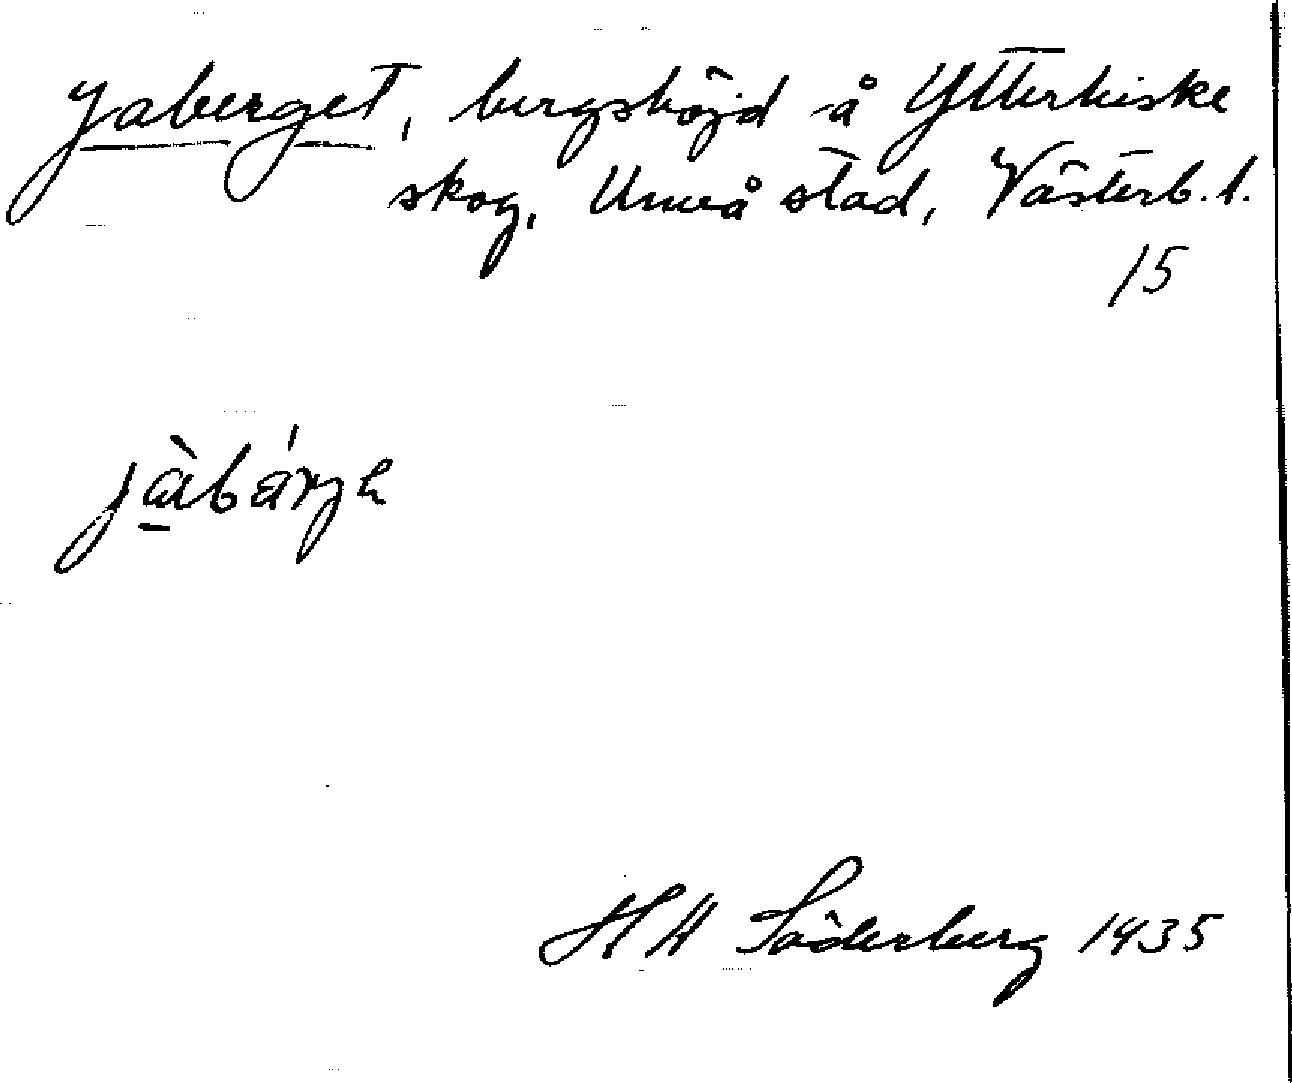 Jaberget, bergshöjd å Ytterhiske
skog, Umeå stad, Västerb. l.
15
jàbárje
H H Söderberg 1935